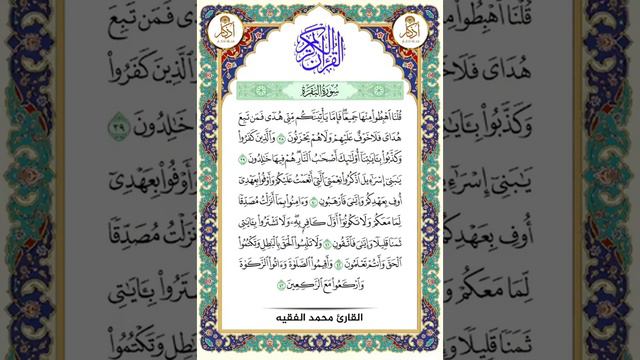 القرآن الكريم
سُورَةُ البَقَرَةِ
قُلْنَا ٱهْبِطُوا۟ مِنْهَا جَمِيعًا فَإِمَّا يَأْتِيَنَّكُم مِّنِّى هُدًى فَمَن تَبِعَ
هُدَاىَ فَلَا خَوْفٌ عَلَيْهِمْ وَلَا هُمْ يَحْزَنُونَ ٣٨ وَٱلَّذِينَ كَفَرُوا۟
وَكَذَّبُوا۟ بِـَٔايَـٰتِنَآ أُو۟لَـٰٓئِكَ أَصْحَـٰبُ ٱلنَّارِ هُمْ فِيهَا خَـٰلِدُونَ ٣٩
يَـٰبَنِىٓ إِسْرَٰٓءِيلَ ٱذْكُرُوا۟ نِعْمَتِىَ ٱلَّتِىٓ أَنْعَمْتُ عَلَيْكُمْ وَأَوْفُوا۟ بِعَهْدِىٓ
أُوفِ بِعَهْدِكُمْ وَإِيَّـٰىَ فَٱرْهَبُونِ ٤٠ وَءَامِنُوا۟ بِمَآ أَنزَلْتُ مُصَدِّقًا
لِّمَا مَعَكُمْ وَلَا تَكُونُوٓا۟ أَوَّلَ كَافِرٍۭ بِهِۦ وَلَا تَشْتَرُوا۟ بِـَٔايَـٰتِى
ثَمَنًا قَلِيلًا وَإِيَّـٰىَ فَٱتَّقُونِ ٤١ وَلَا تَلْبِسُوا۟ ٱلْحَقَّ بِٱلْبَـٰطِلِ وَتَكْتُمُوا۟
ٱلْحَقَّ وَأَنتُمْ تَعْلَمُونَ ٤٢ وَأَقِيمُوا۟ ٱلصَّلَوٰةَ وَءَاتُوا۟ ٱلزَّكَوٰةَ
وَٱرْكَعُوا۟ مَعَ ٱلرَّٰكِعِينَ ٤٣
القارئ محمد الفقيه